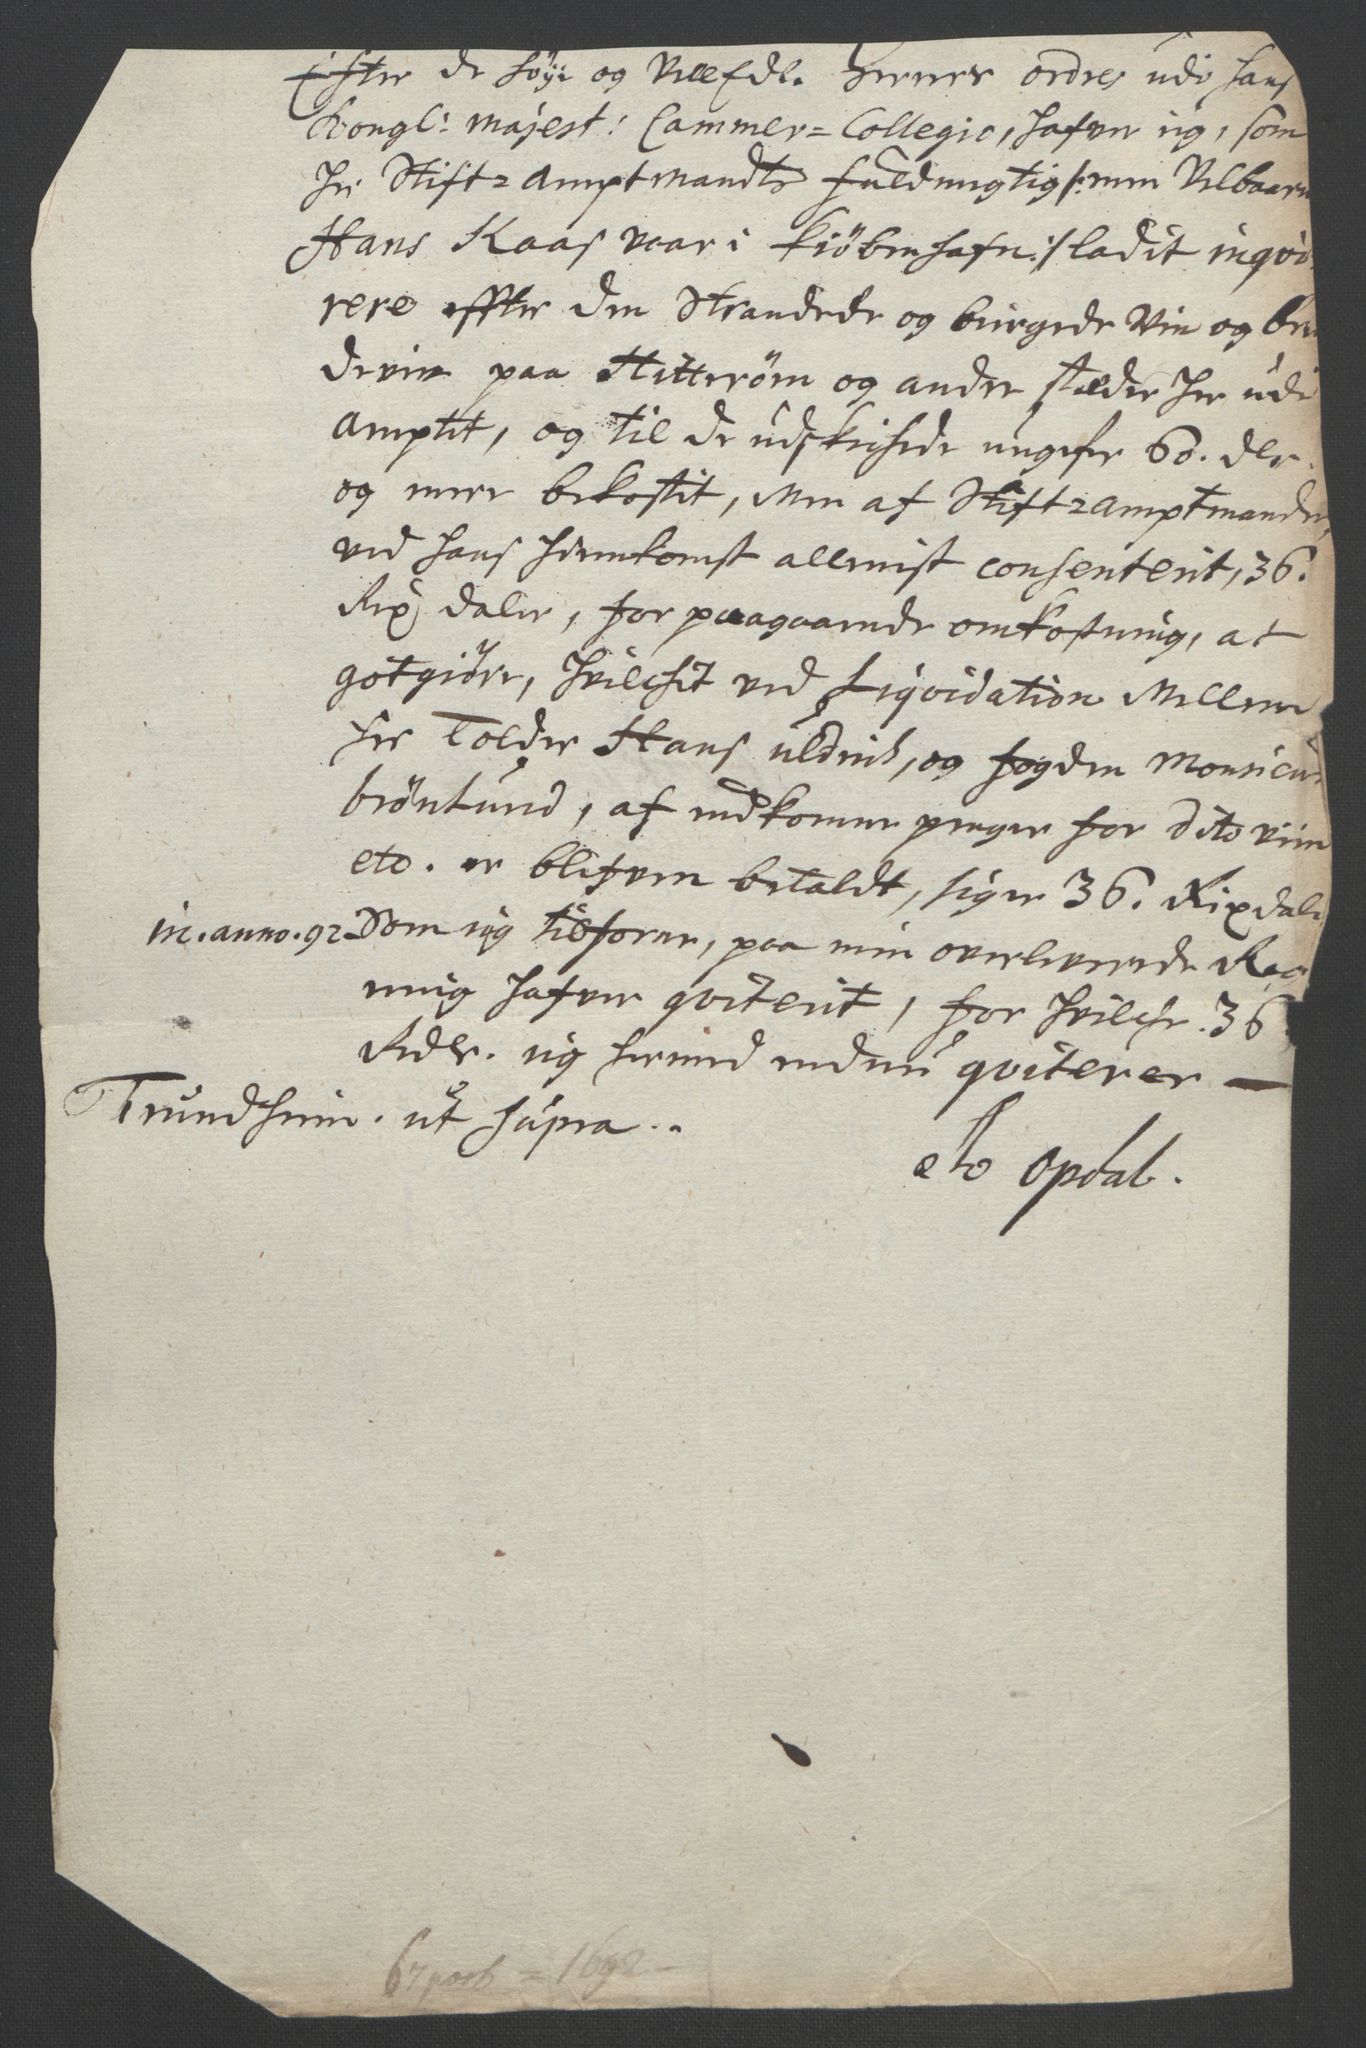 Efter de höye og Vell Edl. Herrers ordres udi hans
Kongl: Majest: Cammer= Collegio, hafver ieg, som
hr Stiftz Amptmandts fuldmegtig /: men Velbaarn
Hans Kaas vaar i Kiöbenhafn :/ ladit inqvi
rere effter den Strandede og biergede Vin og bren
devin paa Hitterøen og andre stæder her udi
amptet, og til de udskichede ungefer 60. dlr.
og mere bekostit, Men af Stiftzamptmanden,
ved hans hiemkomst allenist consenterit, 36.
Rix daler, for paagaaende omkostning, at
gotgiöre, hvilchet ved Liqvidation Mellem
her Tolder Hans Uldrich, og fogden Monsieur
brönlund, af indkomne penger for dito viin
etc. er blefven betaldt, siger 36. Rixdal
in. anno. 92. Som ieg tilforne, paa min overleverede Reg
ning hafver qviterit, for hvilche 36.
Rdlr. ieg hermed endnu qviterer —
Trundhiem. ut supra..
Opdal.
1692